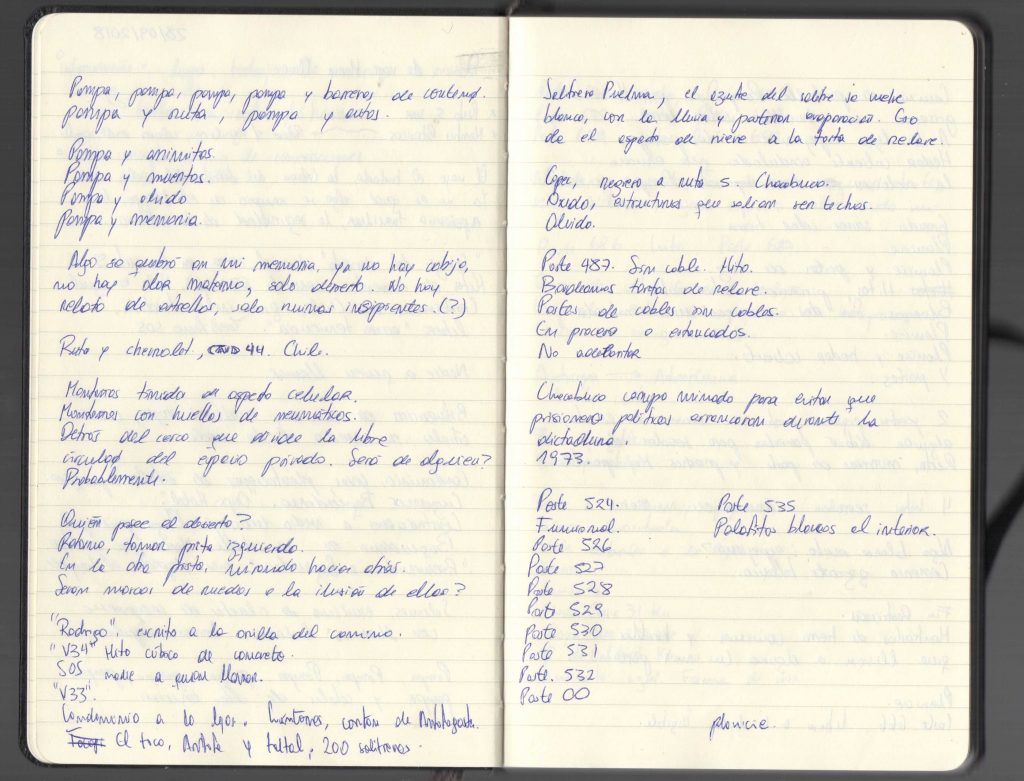 Pampa, pampa, pampa, pampa y barreras de contend.
pampa y ruta, pampa y autos.
Pampa y animitas.
Pampa y muertos.
Pampa y olvido
Pampa y memoria.
Algo se quebró en mi memoria, ya no hay cobijo,
no hay olor materno, solo desierto. No hay
relato de estrellas, solo ruinas insipientes. (?)
Ruta y chevrolet, 44. Chile.
Montones tirados en aspecto celular.
Montones con huellas de neumáticos.
Detrás del cerco que divide la libre
circulad del espacio privado. Será de alguien?
Probablemente.
Quién posee el desierto?
Retorno, tomar pista izquierda.
En la otra pista, mirando hacia atrás.
Seran marcas de ruedas o la ilusión de ellas?
"Rodrigo". escrito a la orilla del camino.
"V34" Hito cúbico de concreto.
SOS nadie a quien llamar.
"V33".
Condominio a lo lejos. Cantones, cantón de Antofagasta.
El toco, Antofa y taltal, 200 salitreras.
Salitrera Puelma, el azufre del salitre se vuelve
blanco, con la lluvia y posterior evaporación. Eso
da el aspecto de nieve a la torta de relave.
Copec, regreso a ruta 5. Chacabuco.
Óxido, estructuras que solían ser techos.
Olvido.
Poste 487. Sin cable. Hito.
Bordeamos tortas de relave.
Postes de cables sin cables.
En proceso o estancados.
No adelantar
Chacabuco campo minado para evitar que
prisioneros políticos arrancaran durante la
dictadura.
1973.
Poste 524.
Funcional.
Poste 526
Poste 527
Poste 528
Poste 529
Poste 530
Poste 531
Poste. 532
Poste 00
Poste 535
Palafitos blancos al interior.
planicie.